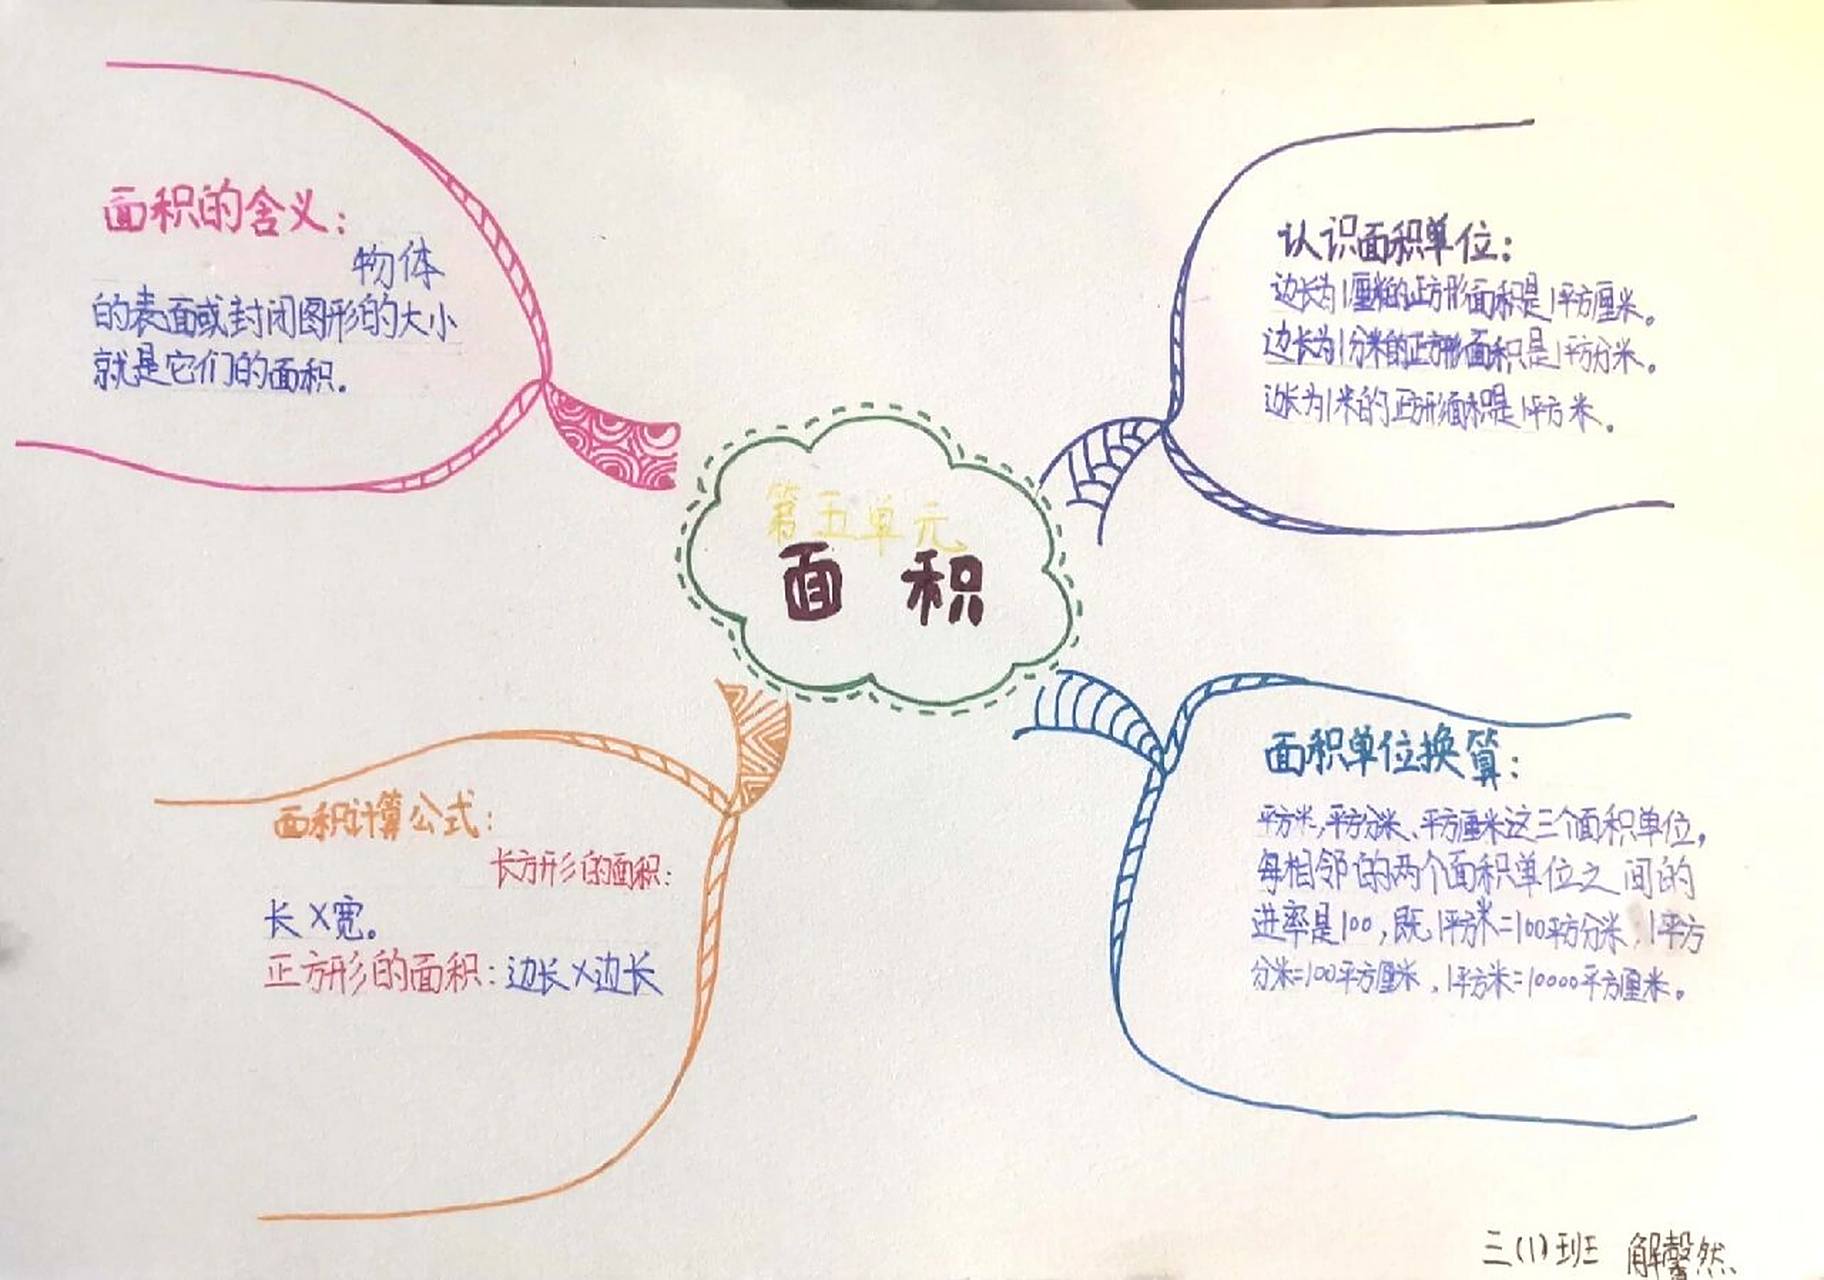 面积的含义：
物体
的表面或封闭图形的大小
就是它们的面积。
认识面积单位：
边长为1厘米的正方形面积是1平方厘米。
边长为1分米的正方形面积是1平方分米。
边长为1米的正方形面积是1平方米。
第五单元
面 积
面积计算公式：
长方形的面积：
长×宽。
正方形的面积：边长×边长
面积单位换算：
平方米，平方分米、平方厘米这三个面积单位，
每相邻的两个面积单位之间的
进率是100，既1平方米=100平方分米，1平方
分米=100平方厘米，1平方米=10000平方厘米。
三(1)班 解馨然